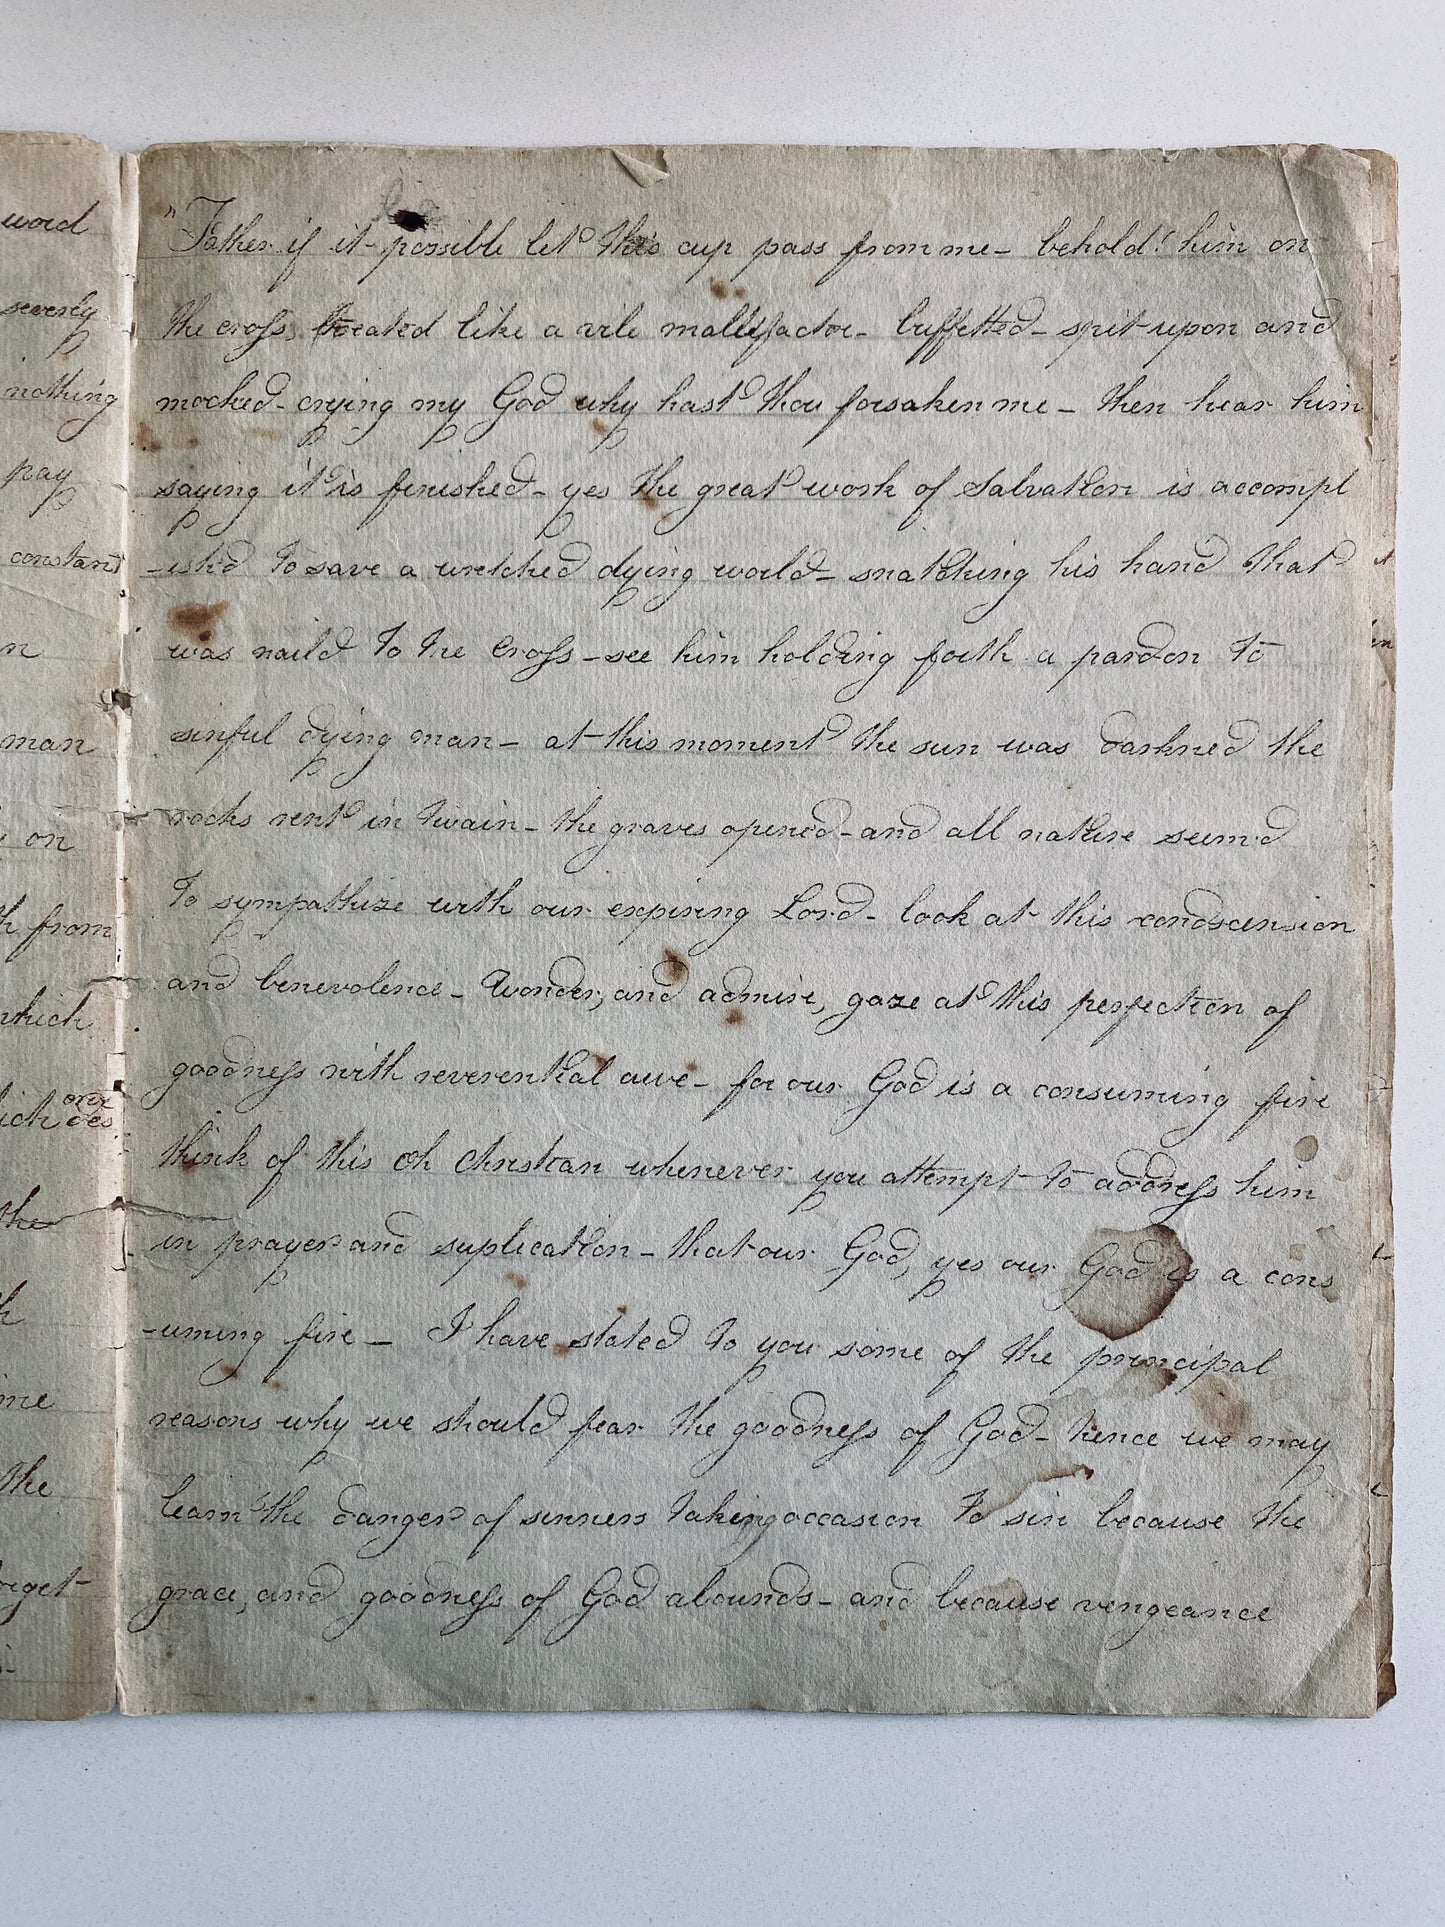 word
severly
nothing
pay
constant
n
man
on
h from
which
one
ich des
the
h
me
the
orget
"Father if it possible let this cup pass from me - behold! him on
the cross, treated like a vile mallefactor - buffetted - spit upon and
mocked - crying my God why hast thou forsaken me - then hear him
saying it is finished - yes the great work of Salvation is accompl
-ish'd to save a wretched dying world - snatching his hand that
was naild to the Cross - see him holding forth a pardon to
sinful dying man - at this moment the sun was darkned the
rocks rent in twain - the graves opened - and all nature seem'd
to sympathize with our expiring Lord - look at this condscension
and benevolence - Wonder, and admire, gaze at this perfection of
goodness with reverential awe - for our God is a consuming fire
think of this oh Christian whenever you attempt to address him
in prayer and suplication - that our God, yes our God is a cons
-uming fire - I have stated to you some of the principal
reasons why we should fear the goodness of God - hence we may
learn the danger of sinners taking occasion to sin because the
grace, and goodness of God abounds - and because vengeance